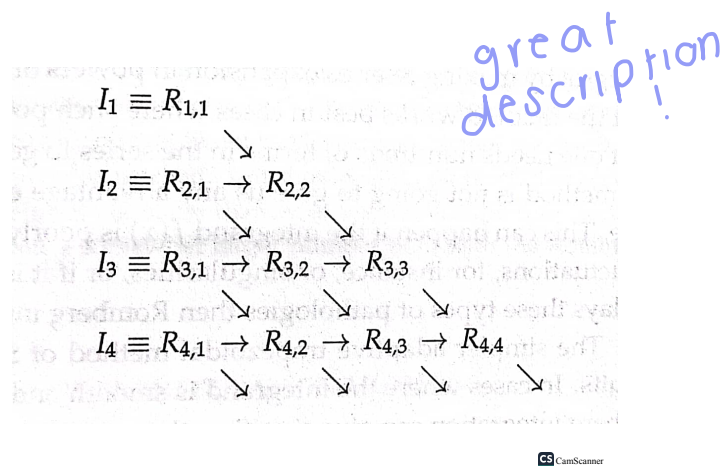 great
description
!
I₁ ≡ R₁,₁
↘
I₂ ≡ R₂,₁ → R₂,₂
↘ ↘
I₃ ≡ R₃,₁ → R₃,₂ → R₃,₃
↘ ↘ ↘
I₄ ≡ R₄,₁ → R₄,₂ → R₄,₃ → R₄,₄
↘ ↘ ↘ ↘
CS CamScanner